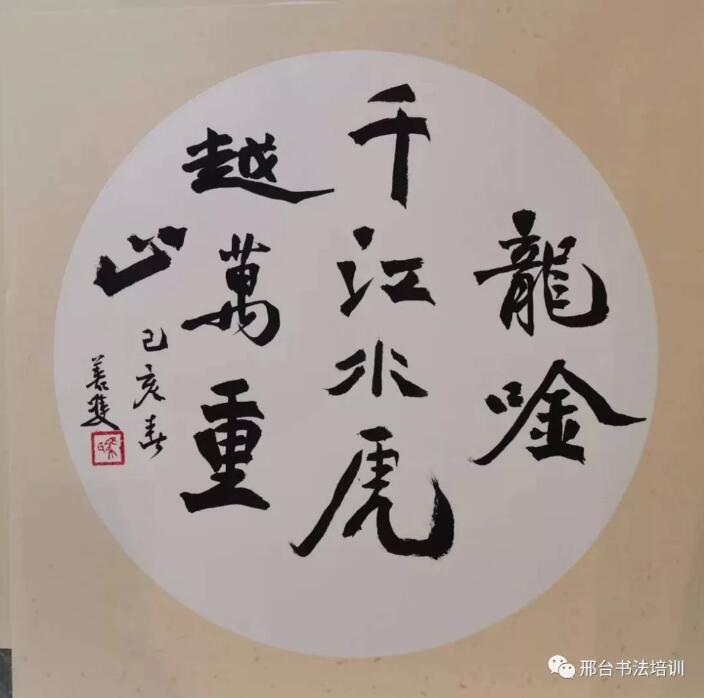 龍唫
千江水虎
越萬重
山
己亥春
善
邢台书法培训